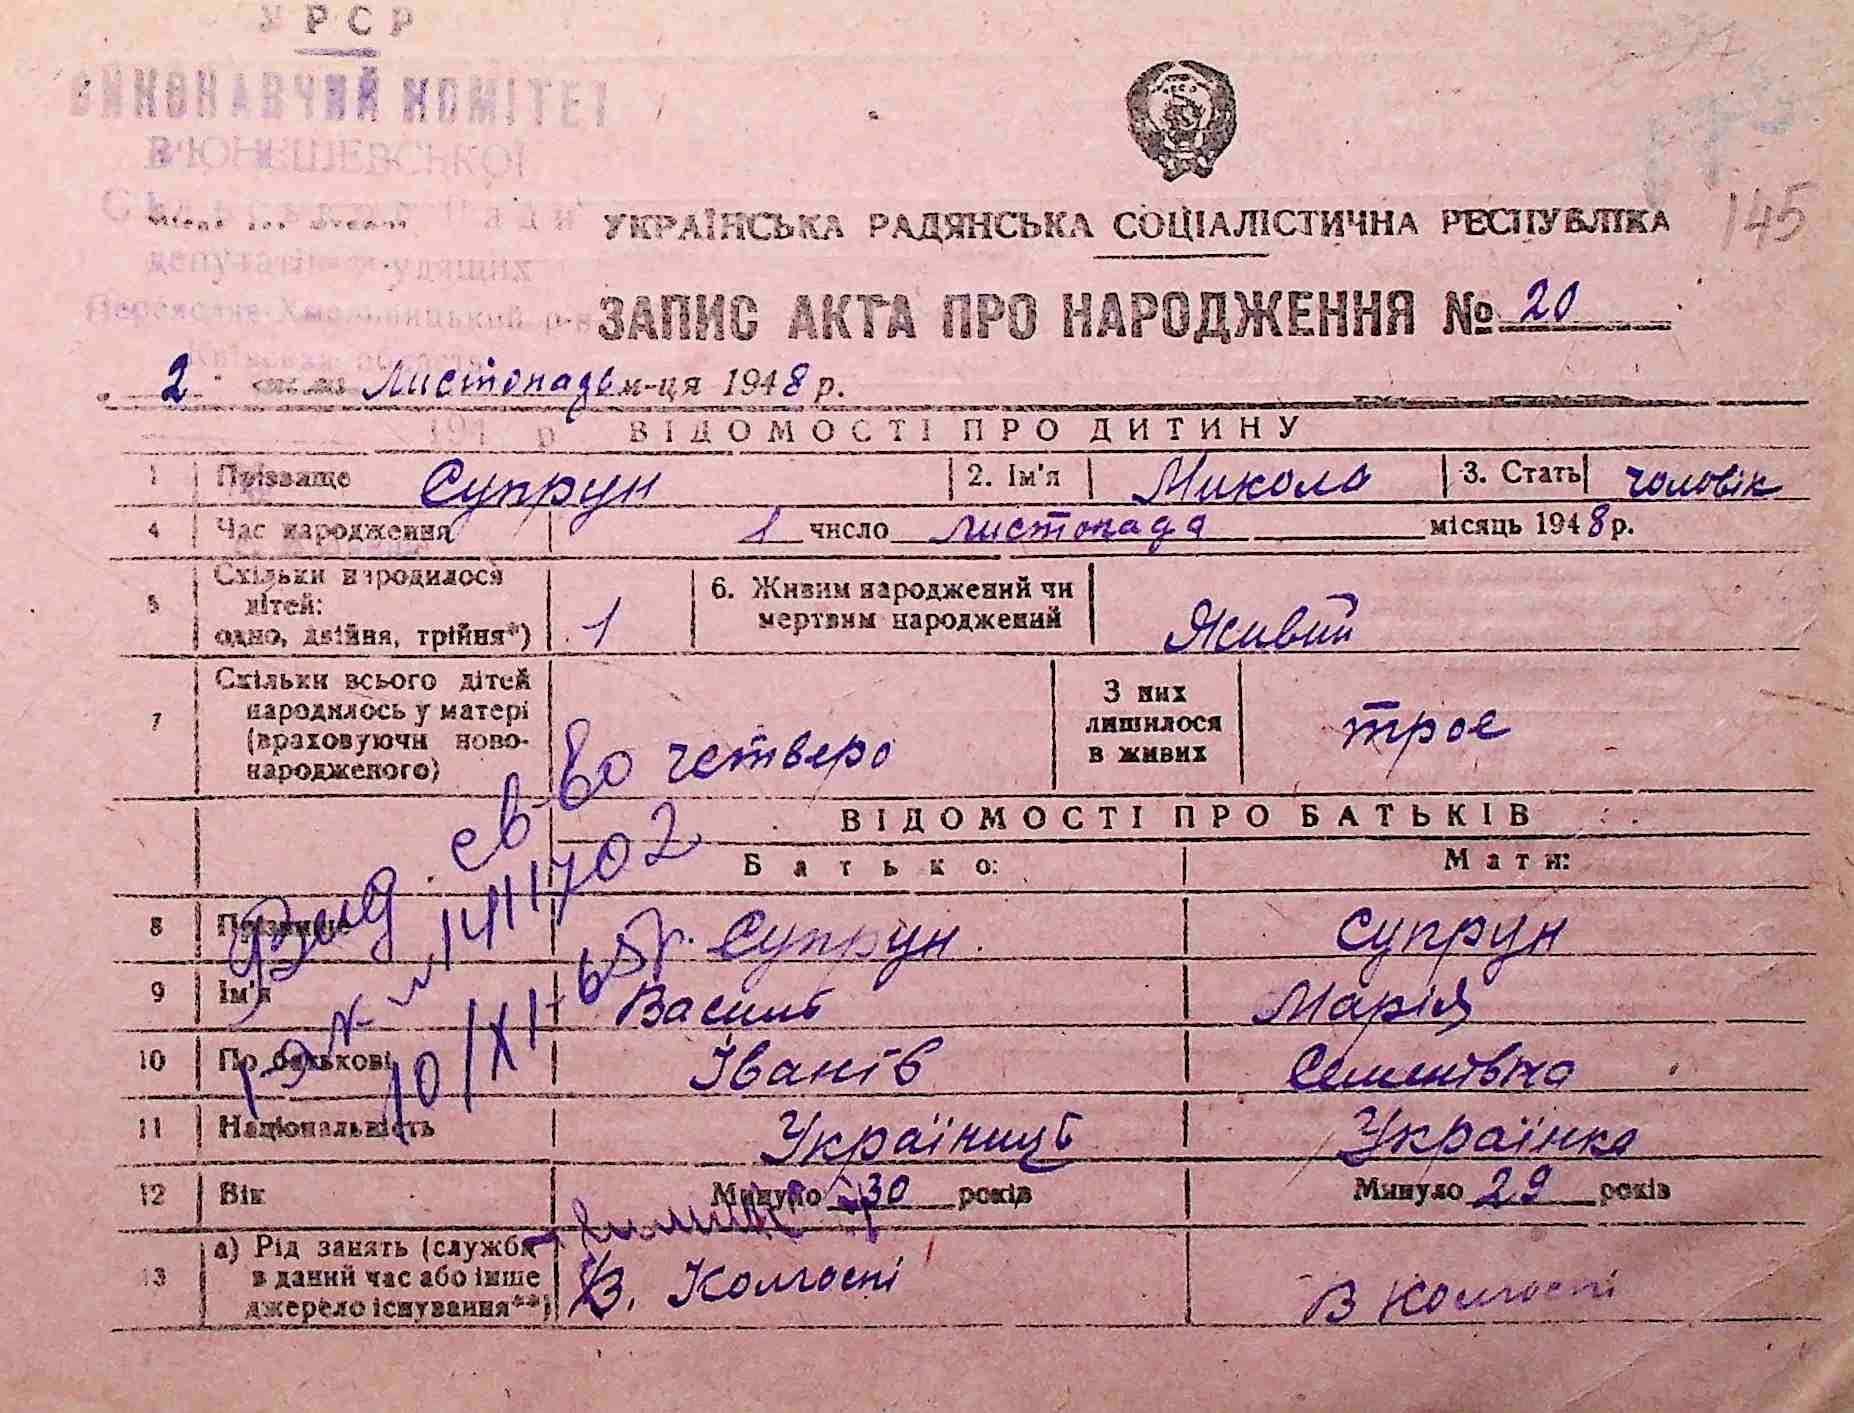 УРСР
ВИКОНАВЧИЙ КОМІТЕТ
В'ЮНИЩЕВСЬКОЇ
депутатів
Переяслав-Хмельницький р-н
145
УКРАЇНСЬКА РАДЯНСЬКА СОЦІАЛІСТИЧНА РЕСПУБЛІКА
ЗАПИС АКТА ПРО НАРОДЖЕННЯ № 20
2 Листопада м-ця 1948 р.
194 р
ВІДОМОСТІ ПРО ДИТИНУ
1 Прізвище Супрун 2. Ім'я Микола 3. Стать чоловік
4 Час народження 1 число листопада місяць 1948 р.
5 Скільки народилося дітей: одно, двійня, трійня*) 1 6. Живим народжений чи мертвим народжений Живий
7 Скільки всього дітей народилось у матері (враховуючи ново-народженого) четверо З них лишилося в живих трое
ВІДОМОСТІ ПРО БАТЬКІВ
Батько: Мати:
8 Прізвище Супрун Супрун
9 Ім'я Василь Марія
10 По батькові Іванів Семенівна
11 Національність Українць Українка
12 Вік Минуло 30 років Минуло 29 років
13 а) Рід занять (служба в даний час або інше джерело існування**) В. Колгоспі В Колгоспі
Выд. св-во
1411702
10/XI-65г.